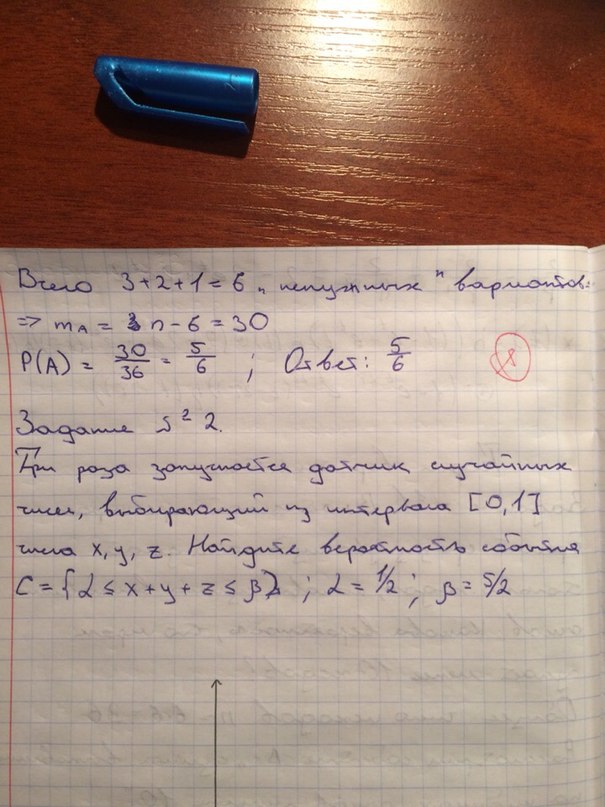 Всего 3+2+1=6 „ненужных" вариантов:
=> m_A = n-6 = 30
P(A) = 30/36 = 5/6 ; Ответ: 5/6
Задание №2.
Три раза запускается датчик случайных
чисел, выбирающий из интервала [0,1]
числа x, y, z. Найдите вероятность события
C = {α ≤ x+y+z ≤ β} ; α = 1/2 ; β = 5/2